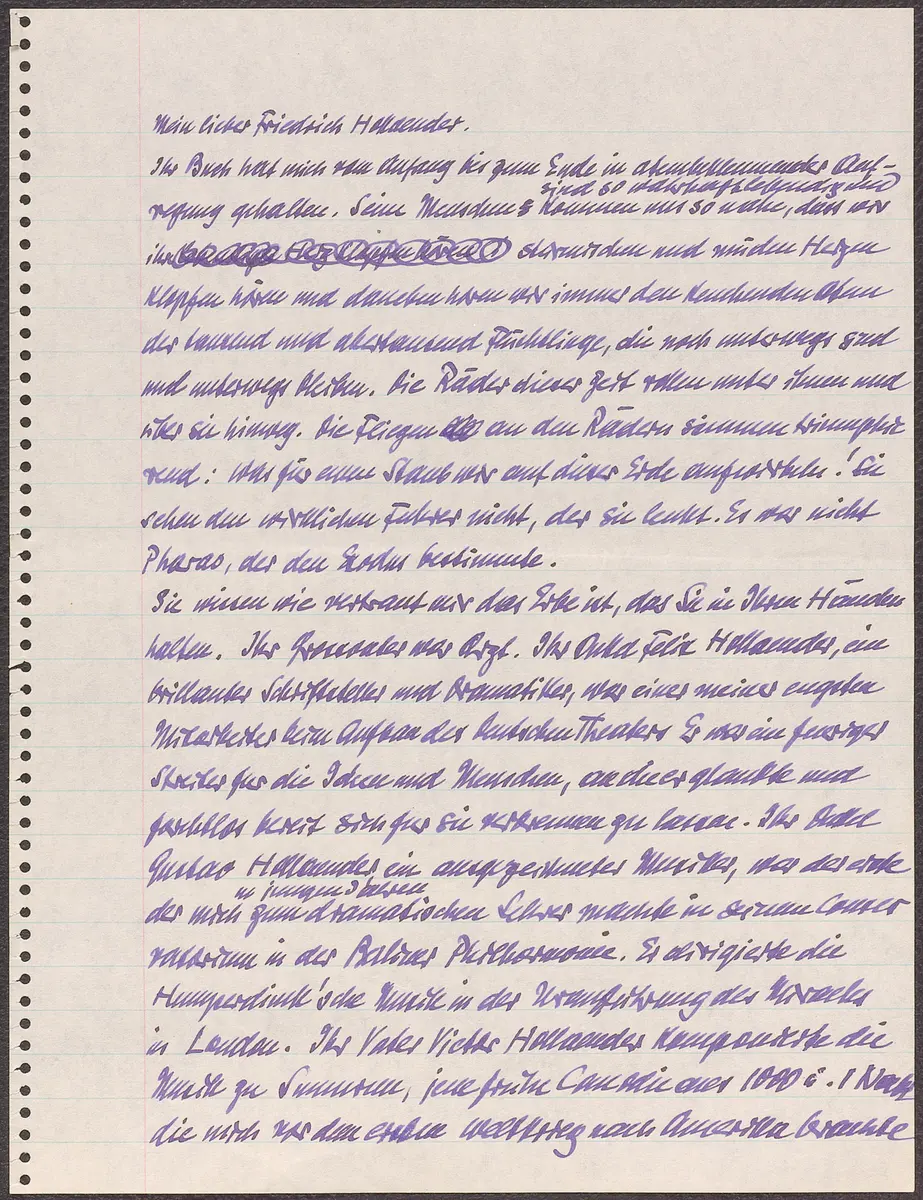 Mein lieber Friedrich Hollaender.
Ihr Buch hat mich vom Anfang bis zum Ende in atembeklemmender Auf-
sind so wahrhaft lebendig und
regung gehalten. Seine Menschen kommen uns so nahe, dass wir
ihre stürmischen und müden Herzen
klopfen hören und daneben hören wir immer den keuchenden Atem
der tausend und abertausend Flüchtlinge, die noch unterwegs sind
und unterwegs bleiben. Die Räder dieser Zeit rollen unter ihnen und
über sie hinweg. Die Fliegen an den Rädern summen triumphie
rend: was für einen Staub wir auf dieser Erde aufwirbeln! Sie
sehen den wirklichen Führer nicht, der sie lenkt. Es war nicht
Pharao, der den Exodus bestimmte.
Sie wissen wie vertraut mir das Erbe ist, das Sie in Ihren Händen
halten. Ihr Grossvater war Arzt. Ihr Onkel Felix Hollaender, ein
brillanter Schriftsteller und Dramatiker, war einer meiner engsten
Mitarbeiter beim Aufbau des Deutschen Theaters Er war ein feuriger
Streiter für die Ideen und Menschen, an die er glaubte und
furchtlos bereit sich für sie verbrennen zu lassen. Ihr Onkel
Gustav Hollaender, ein ausgezeichneter Musiker, war der erste
in jungen Jahren
der mich zum dramatischen Lehrer machte in seinem Conser
vatorium in der Berliner Philharmonie. Er dirigierte die
Humperdink'sche Musik in der Uraufführung des Miracles
in London. Ihr Vater Victor Hollaender komponierte die
Musik zu Sumurun, jene frühe Comödie aus 1000 u. 1 Nacht
die mich vor dem ersten Weltkrieg nach Amerika brachte